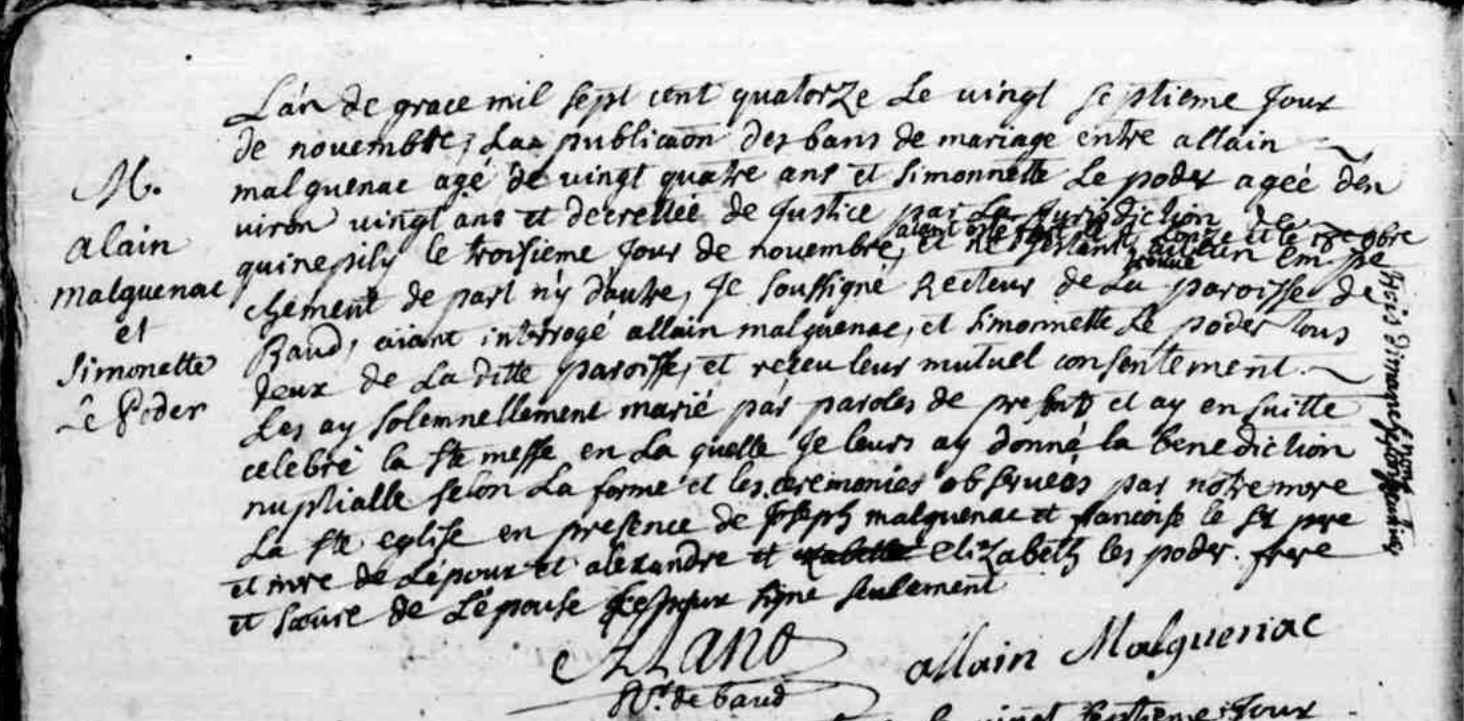 M.
alain
malguenac
et
Simonette
Le Poder
L'an de grace mil sept cent quatorze Le vingt septieme Jour
de novembre, Laa publicaôn des bans de mariage entre allain
malguenac agé de vingt quatre ans et Simonnette Le poder ageé d'en
viron vingt ans et decretteé de Justice par La Jurisdiction de
aiant esté et le 18e 9bre
quinepily le troisieme Jour de novembre, et ne aucun empe
trouvé
chement de part n'y d'autre, Je soussigné Recteur de La paroisse de
Baud, aiant interrogé allain malguenac, et Simonnette Le poder tous
deux de La ditte paroisse, et receu leur mutuel consentement
Les ay solemnellement marié par paroles de presents et ay ensuitte
celebré la ste messe en La quelle Je leurs ay donné la benediction
nuptialle selon La forme et les ceremonies observeés par notre mere
La ste eglise en presence de Joseph malguenac et francoise le pere
et mere de L'epoux et alexandre et elizabeth les poder frere
et soeure de L'epouse Lespoux signe seulement
allain Malguenac
Rr. de baud
trois dimanches
vingt septieme Jour